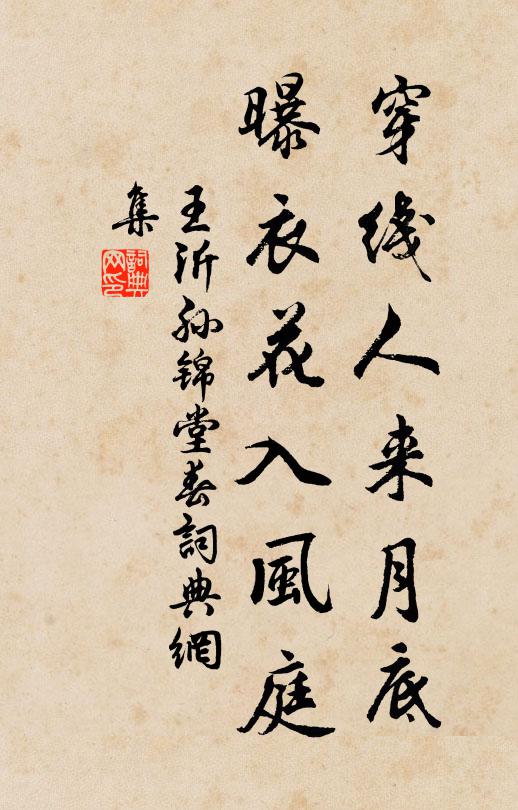 穿线人来月底
曝衣花入風庭
王沂孙锦堂春詞典網
集
詞典
网印